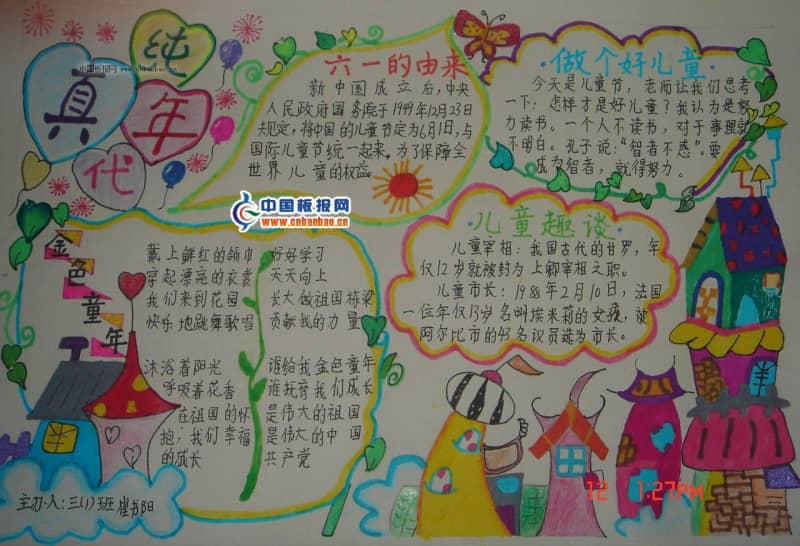 中国板报网
www.cnbanbao.cn
纯
真
年
代
六一的由来
新中国成立后,中央
人民政府国务院于1949年12月23日
规定,将中国的儿童节定为6月1日,与
国际儿童节统一起来。为了保障全
世界儿童的权益。
做个好儿童
今天是儿童节,老师让我们思考
一下:怎样才是好儿童?我认为是努
力读书。一个人不读书,对于事理就
不明白。孔子说:“智者不惑”。要
成为智者,就得努力。
中国板报网
www.cnbanbao.cn
金色童年
戴上鲜红的领巾
穿起漂亮的衣裳
我们来到花园
快乐地跳舞歌唱
沐浴着阳光
呼吸着花香
在祖国的怀
抱,我们幸福
的成长
好好学习
天天向上
长大做祖国栋梁
贡献我的力量
谁给我金色童年
谁抚育我们成长
是伟大的祖国
是伟大的中国
共产党
儿童趣谈
儿童宰相:我国古代的甘罗,年
仅12岁就被封为上卿宰相之职。
儿童市长:1988年2月10日,法国
一位年仅13岁名叫埃米莉的女孩,被
阿尔比市的43名议员选为市长。
主办人:三(1)班 崔书阳
12 1:27PM